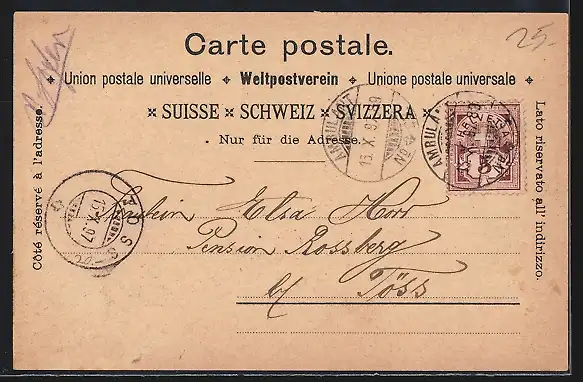 25.-
Carte postale.
Union postale universelle ✦ Weltpostverein ✦ Unione postale universale
SUISSE × SCHWEIZ × SVIZZERA
Nur für die Adresse.
Côté réservé à l'adresse.
Lato riservato all' indirizzo.
AMBULANT
15. X. 97
AMBULANT
TÖSS
15. X. 97
Fräulein Elsa Horr
Pension Rossberg
b/ Töss